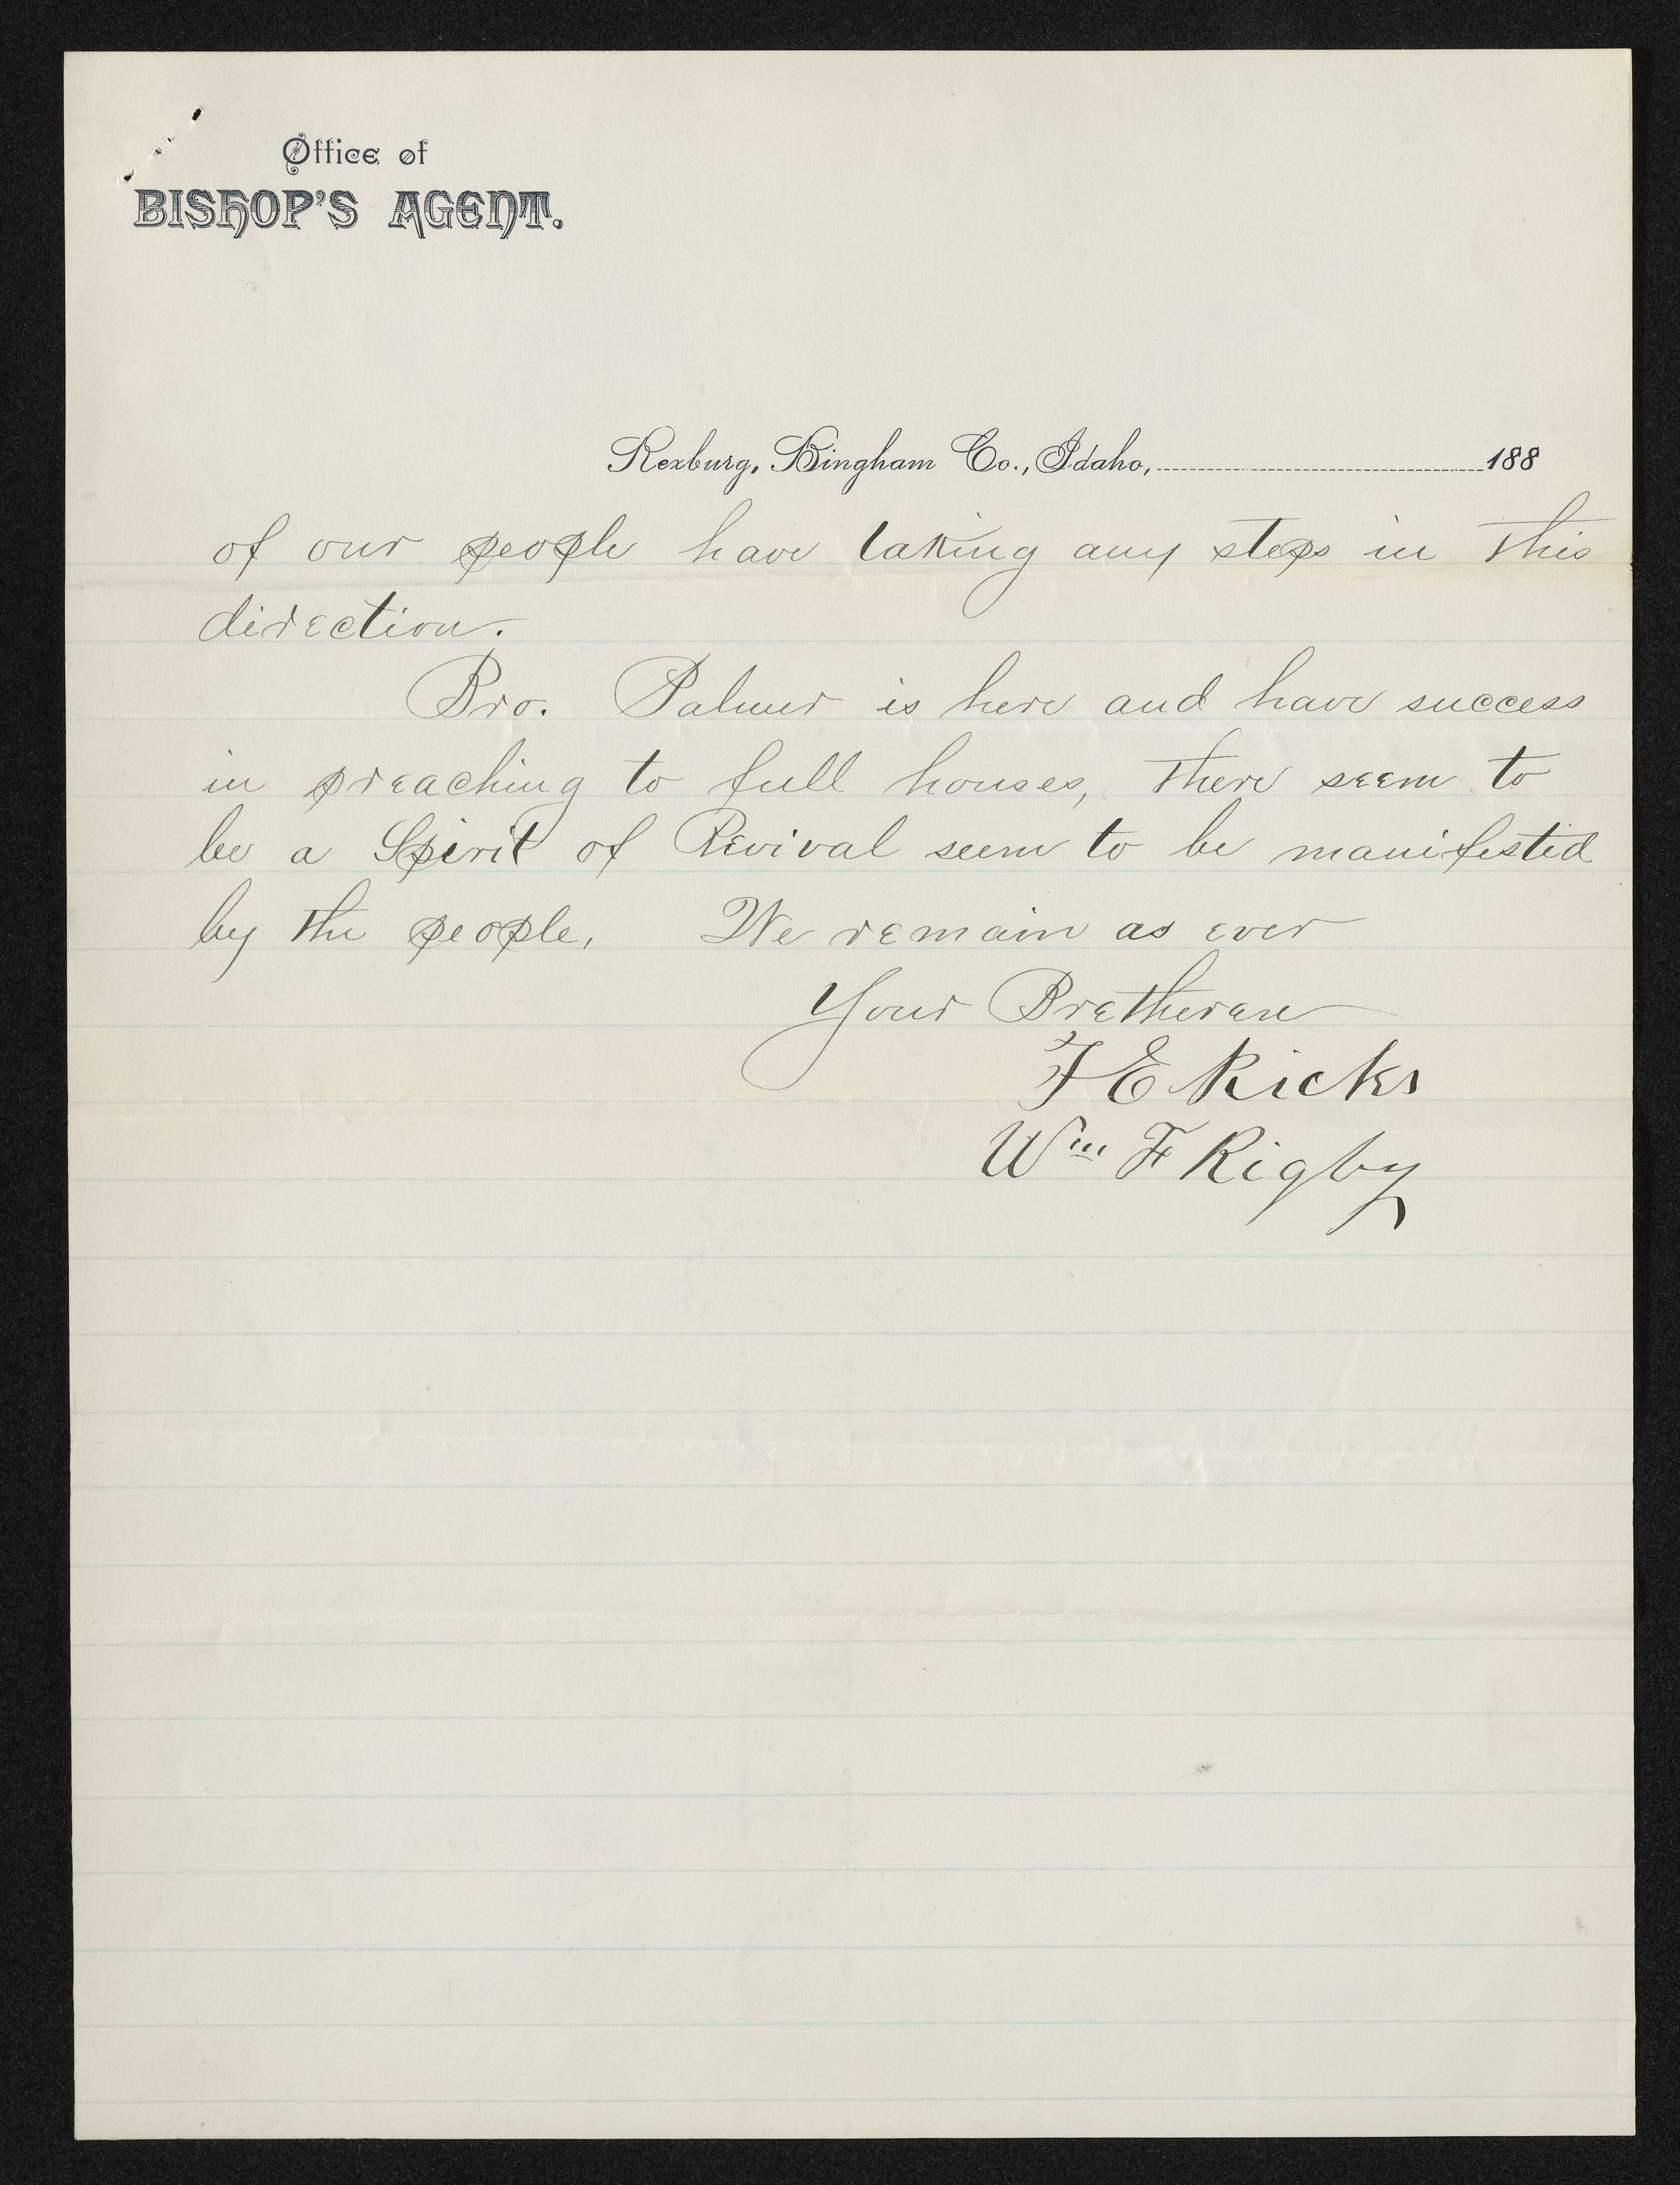 Office of
BISHOP'S AGENT.
Rexburg, Bingham Co., Idaho, 188
of our people have taking any steps in this
direction.
Bro. Palmer is here and have success
in preaching to full houses, there seem to
be a Spirit of Revival seem to be manifested
by the people, We remain as ever
Your Bretheren
T E Ricks
Wm F Rigby